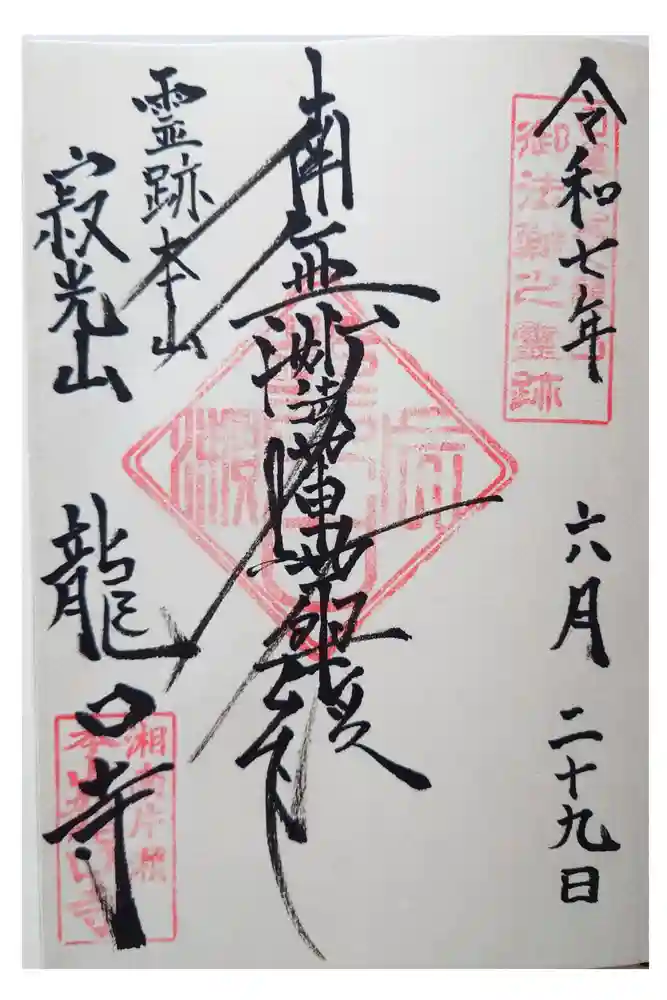 令和七年 六月 二十九日
御法難之霊跡
南無妙法蓮華経
霊跡本山
寂光山 龍口寺
湘南片瀬
本山龍口寺